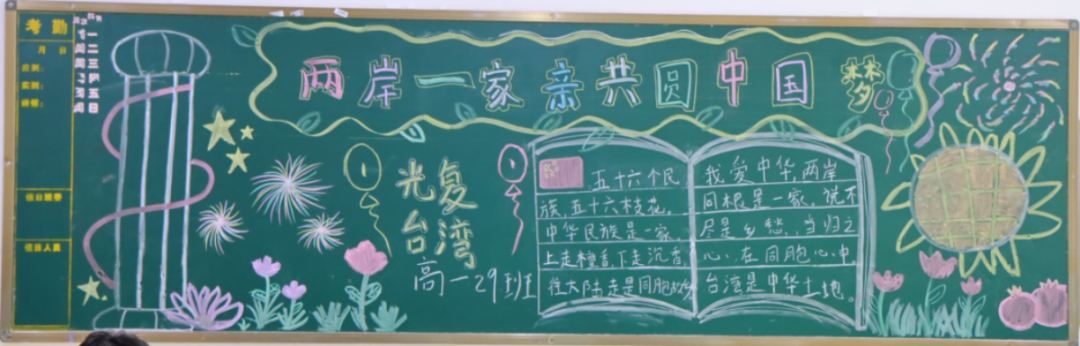 考勤
月 日
一二三四五日
两岸一家亲共圆中国梦
光复
台湾
高一29班
五十六个民
族,五十六枝花,
中华民族是一家
上走檀香,下走沉香,
往大陆走是同胞
我爱中华,两岸
同根是一家,说不
尽是乡愁,当归之
心,在同胞心中,
台湾是中华土地。
值日班委
值日人员